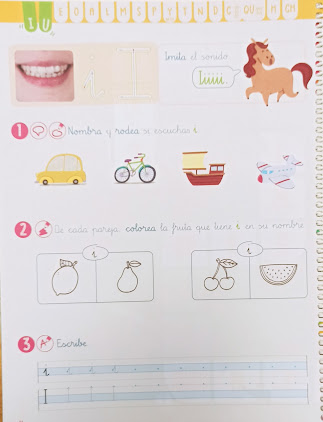 I U E O A L M S P Y T N D C QU H CH
i I
Imita el sonido
Iiiiii
1 Nombra y rodea si escuchas i.
2 De cada pareja, colorea la fruta que tiene i en su nombre.
i i
3 Escribe
i i i i
I